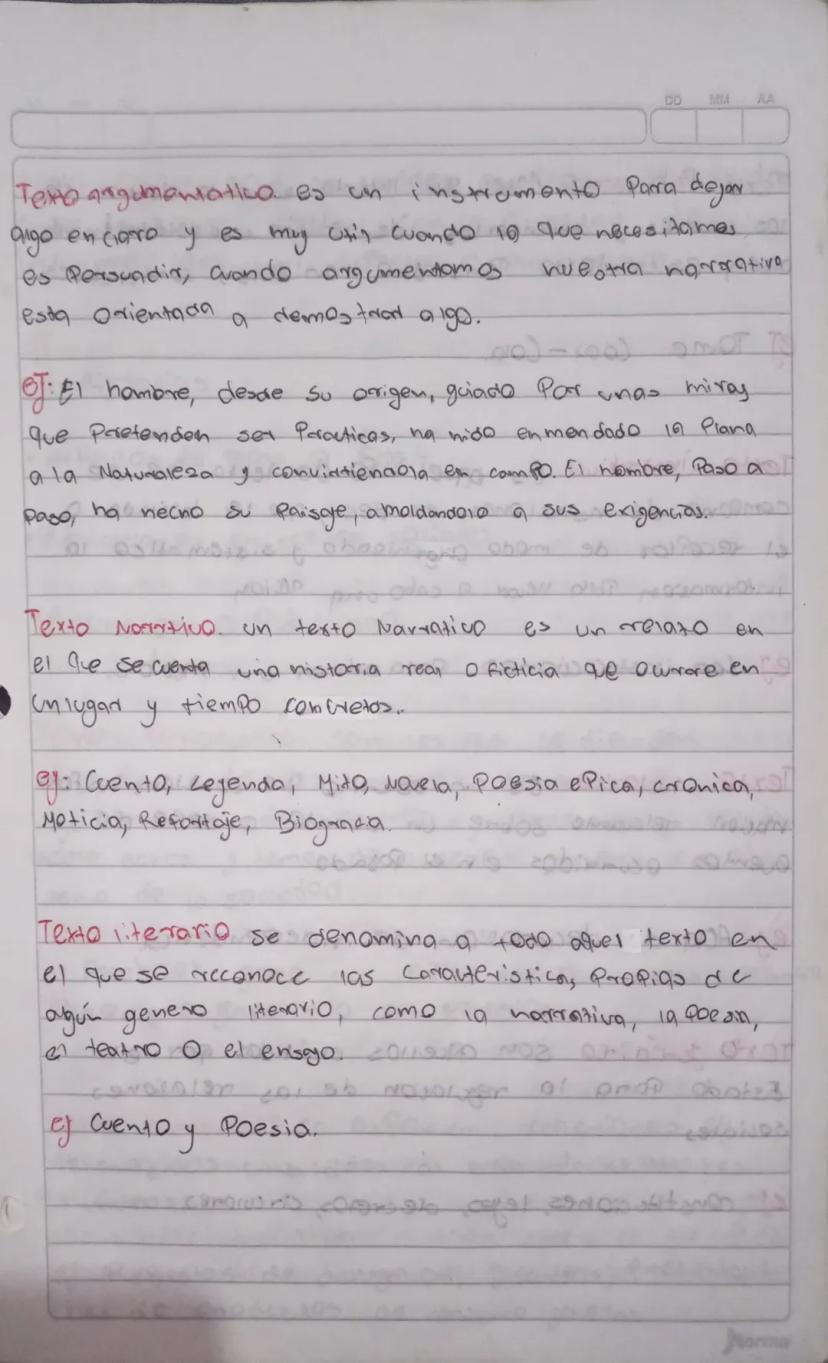 DD MM AA
Texto argumentatico. es un instrumento para dejar
algo en claro y es muy util cuando lo que necesitamos
es Persuadir, cuando argumentamos nuestra narrativa
esta orientada a demostrar algo.
ej: El hombre, desde su origen, guiado Por unas miras
que Pretenden ser Practicas, ha enmendado la Plana
a la Naturaleza y convirtiendola en campo. El hombre, Paso a
Paso, ha hecho su Paisaje, amoldandolo a sus exigencias.
Texto Narrativo. un texto Narrativo es un relato en
el que se cuenta una historia real o ficticia que ocurre en
un lugar y tiempo concretos..
ej: Cuento, Leyenda, Mito, Novela, Poesia ePica, cronica,
Noticia, Reportaje, Biografia.
Texto literario se denomina a todo aquel texto en
el que se reconoce las caracteristicas propias de
algún genero literario, como la narrativa, la Poesia,
el teatro o el ensayo.
ej Cuento y Poesia.
Norma